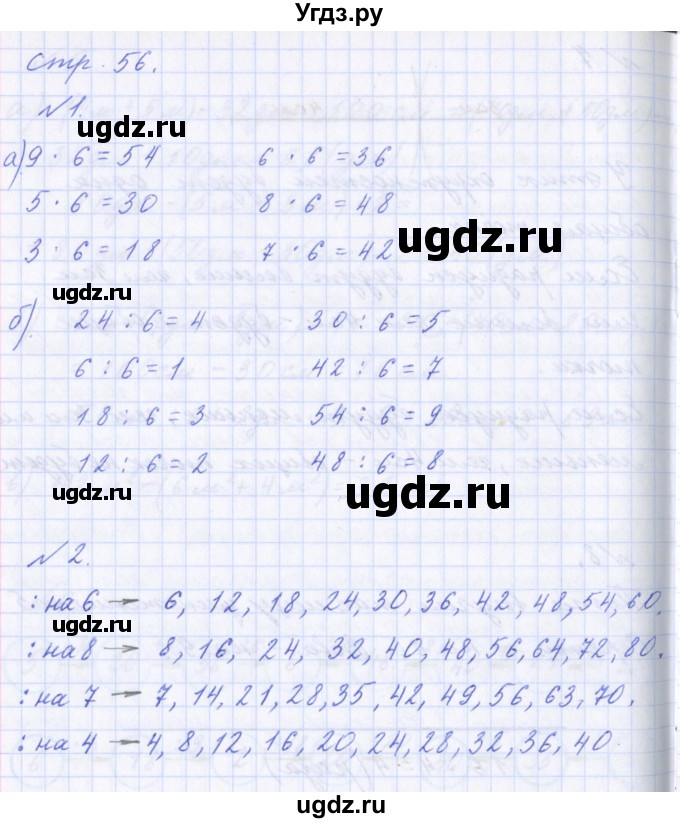 Угдз.ру
Стр. 56.
№1.
ugdz.ru
а) 9 · 6 = 54 6 · 6 = 36
5 · 6 = 30 8 · 6 = 48
ugdz.ru
3 · 6 = 18 7 · 6 = 42
ugdz.ru
б). 24 : 6 = 4 30 : 6 = 5
6 : 6 = 1 42 : 6 = 7
18 : 6 = 3 54 : 6 = 9
12 : 6 = 2 48 : 6 = 8
ugdz.ru ugdz.ru
№2.
: на 6 → 6, 12, 18, 24, 30, 36, 42, 48, 54, 60.
ugdz.ru
: на 8 → 8, 16, 24, 32, 40, 48, 56, 64, 72, 80.
: на 7 → 7, 14, 21, 28, 35, 42, 49, 56, 63, 70.
: на 4 → 4, 8, 12, 16, 20, 24, 28, 32, 36, 40
ugdz.ru